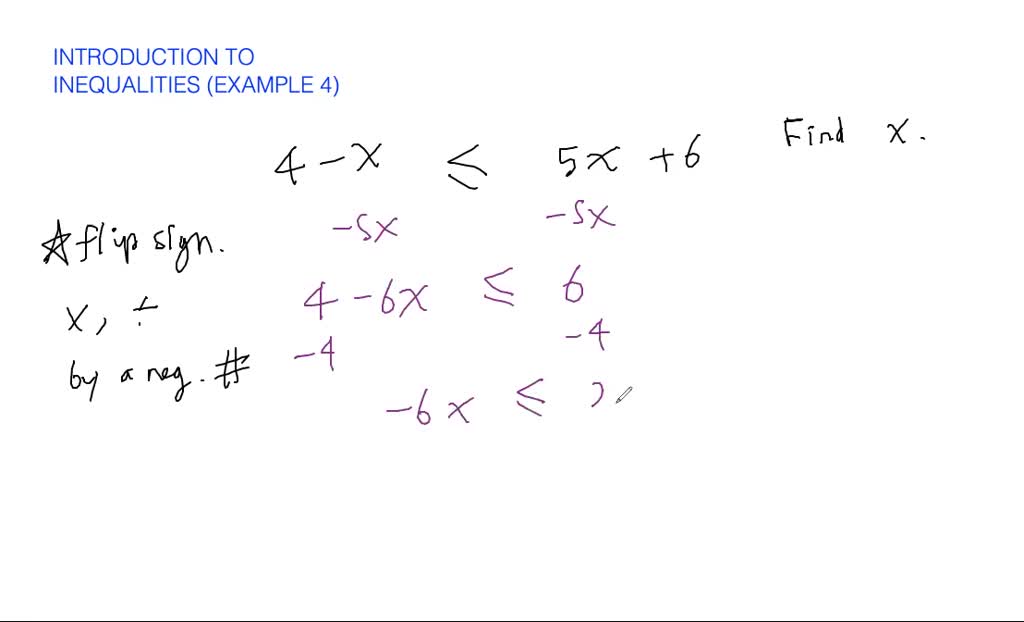 INTRODUCTION TO
INEQUALITIES (EXAMPLE 4)
Find x.
4 - x ≤ 5x + 6
-5x -5x
☆ flip sign.
4 - 6x ≤ 6
x, ÷
-4 -4
by a neg. #
-6x ≤